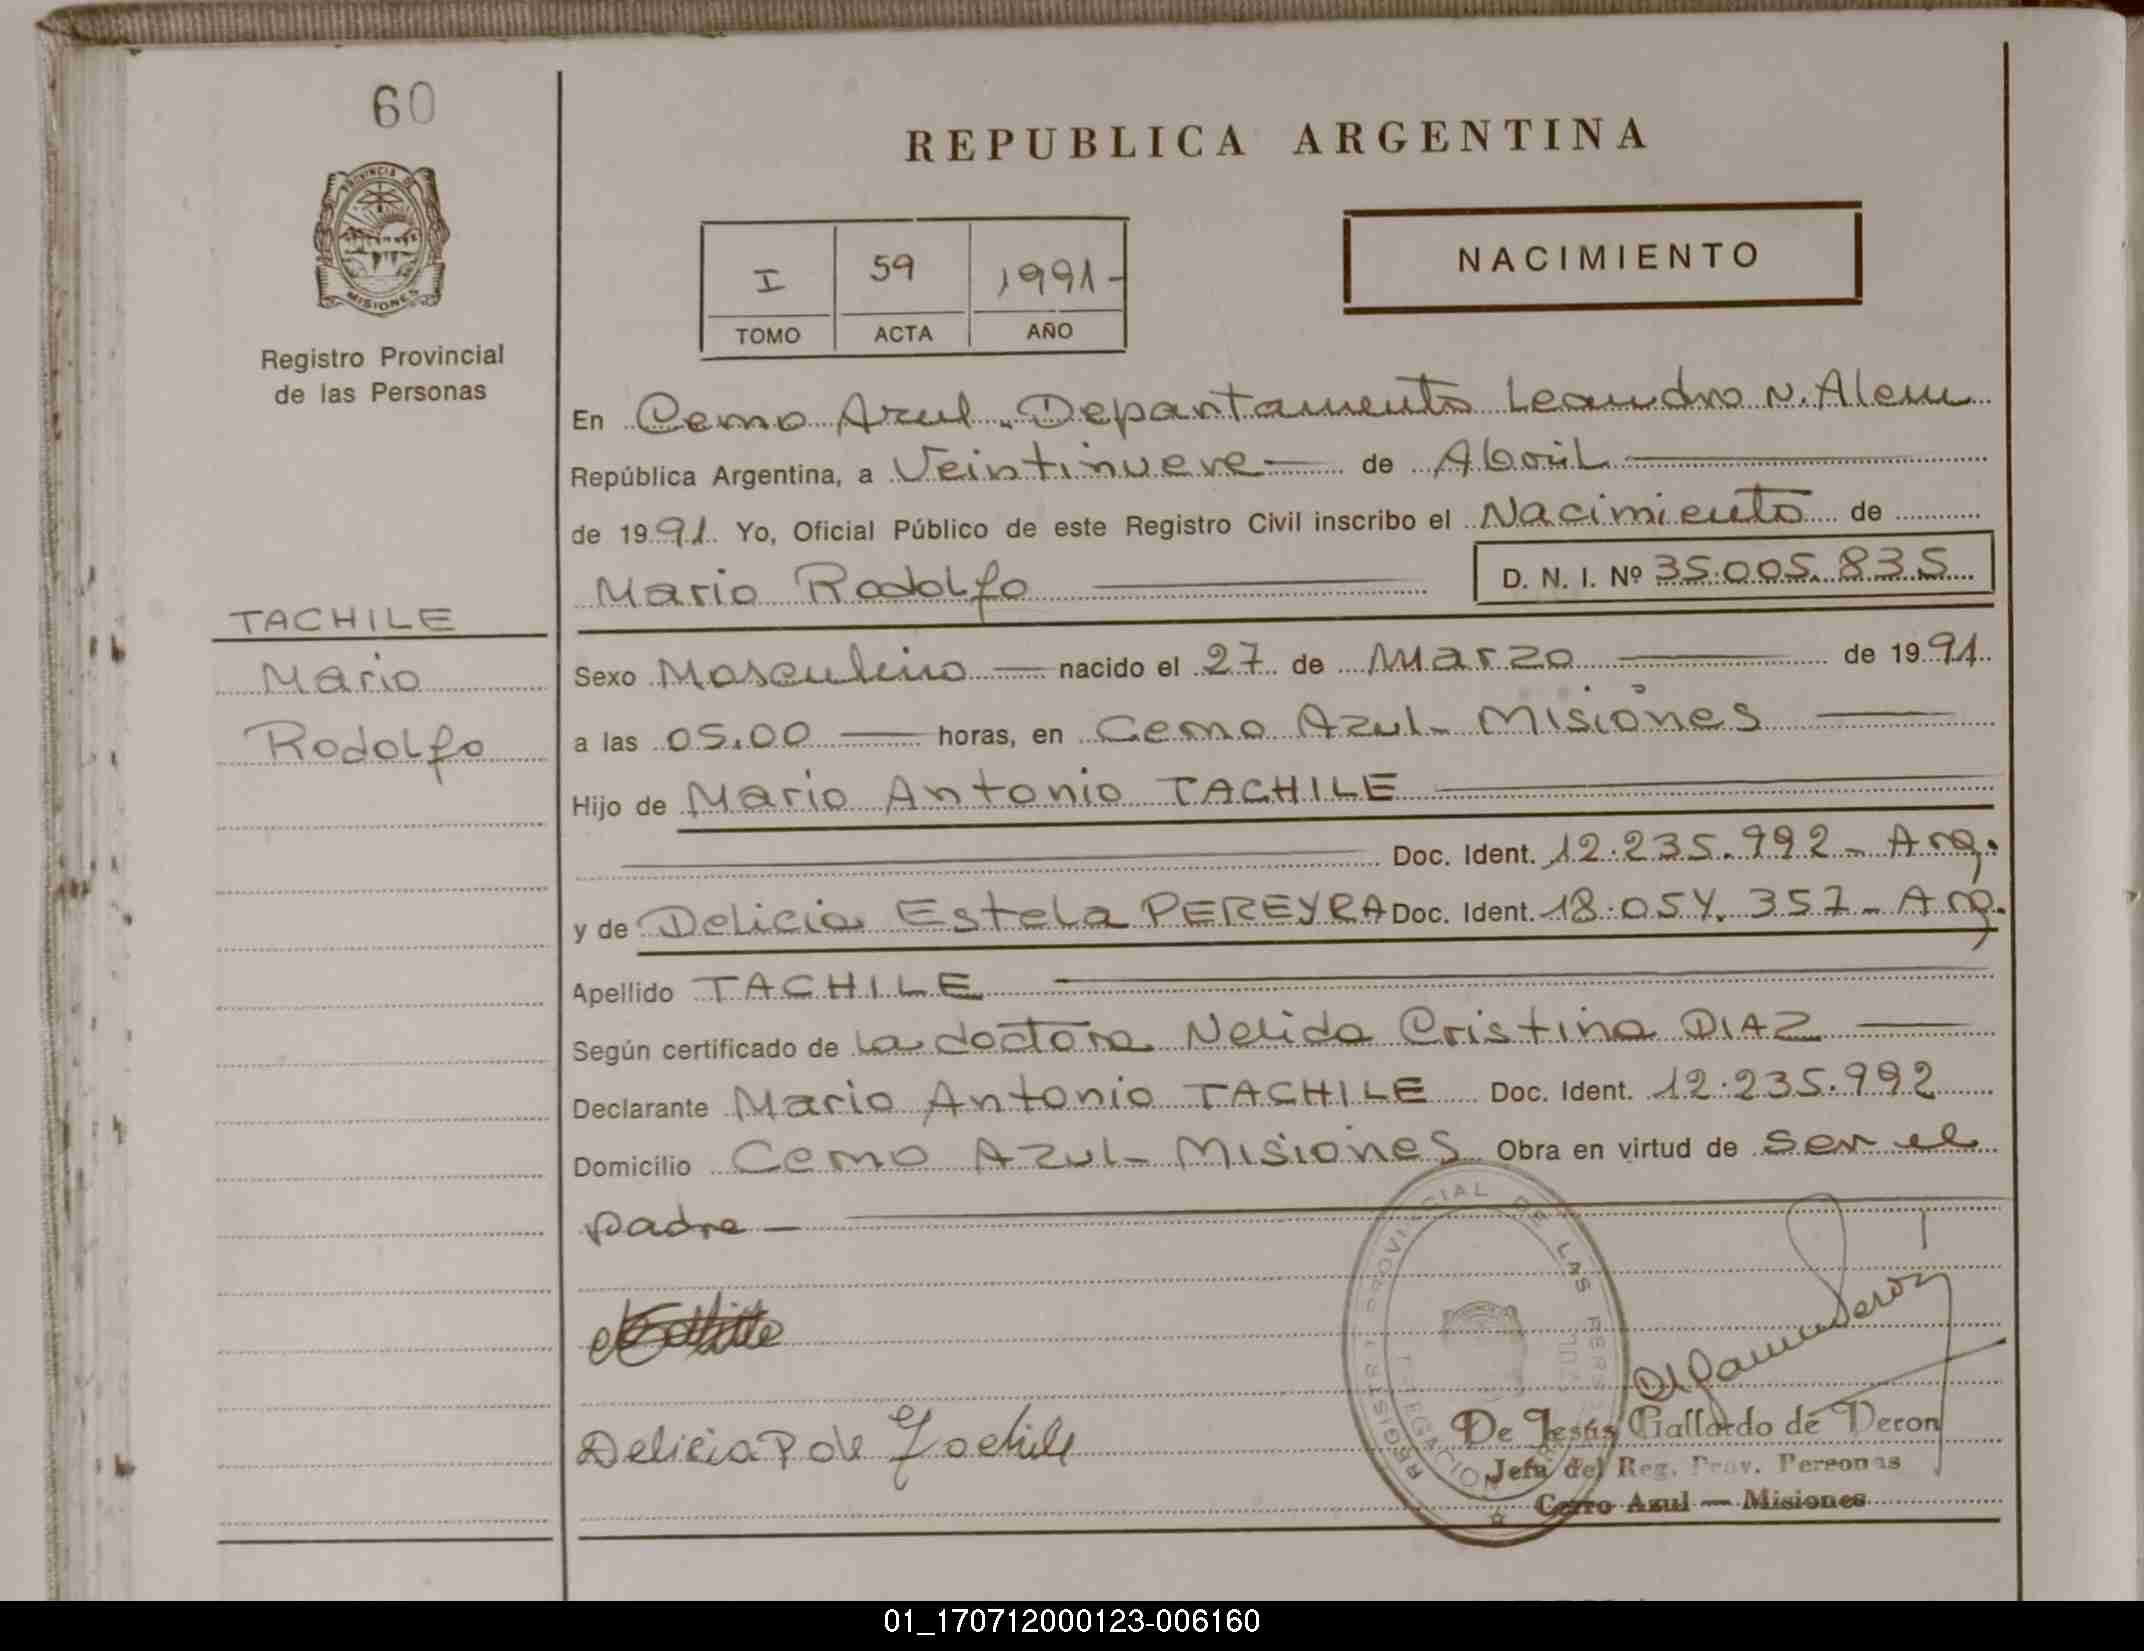 60
PROVINCIA DE
MISIONES
Registro Provincial
de las Personas
TACHILE
Mario
Rodolfo
REPUBLICA ARGENTINA
I 59 1991-
TOMO ACTA AÑO
NACIMIENTO
En Cerro Azul, Departamento Leandro N. Alem
República Argentina, a Veintinueve de Abril
de 1991. Yo, Oficial Público de este Registro Civil inscribo el Nacimiento de
Mario Rodolfo D. N. I. Nº 35.005.835
Sexo Masculino nacido el 27 de Marzo de 1991
a las 05.00 horas, en Cerro Azul- Misiones
Hijo de Mario Antonio TACHILE
Doc. Ident. 12.235.992- Arg.
y de Delicia Estela PEREYRA Doc. Ident. 18.054.357- Arg.
Apellido TACHILE
Según certificado de la doctora Nelida Cristina DIAZ
Declarante Mario Antonio TACHILE Doc. Ident. 12.235.992
Domicilio Cerro Azul- Misiones Obra en virtud de ser el
padre-
Delicia P de Tachile
REGISTRO PROVINCIAL DE LAS PERS
De Jesús Gallardo de Veron
Jefa del Reg. Prov. Personas
Cerro Azul — Misiones
01_170712000123-006160